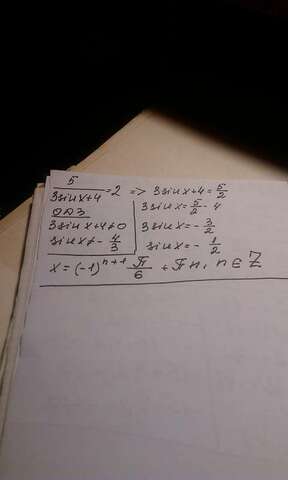 5/(3sinx+4) = 2 => 3sinx+4 = 5/2
ОДЗ
3sinx+4≠0
sinx≠ - 4/3
3sinx = 5/2 - 4
3sinx = - 3/2
sinx = - 1/2
x = (-1)^(n+1) π/6 + πn, n ∈ Z